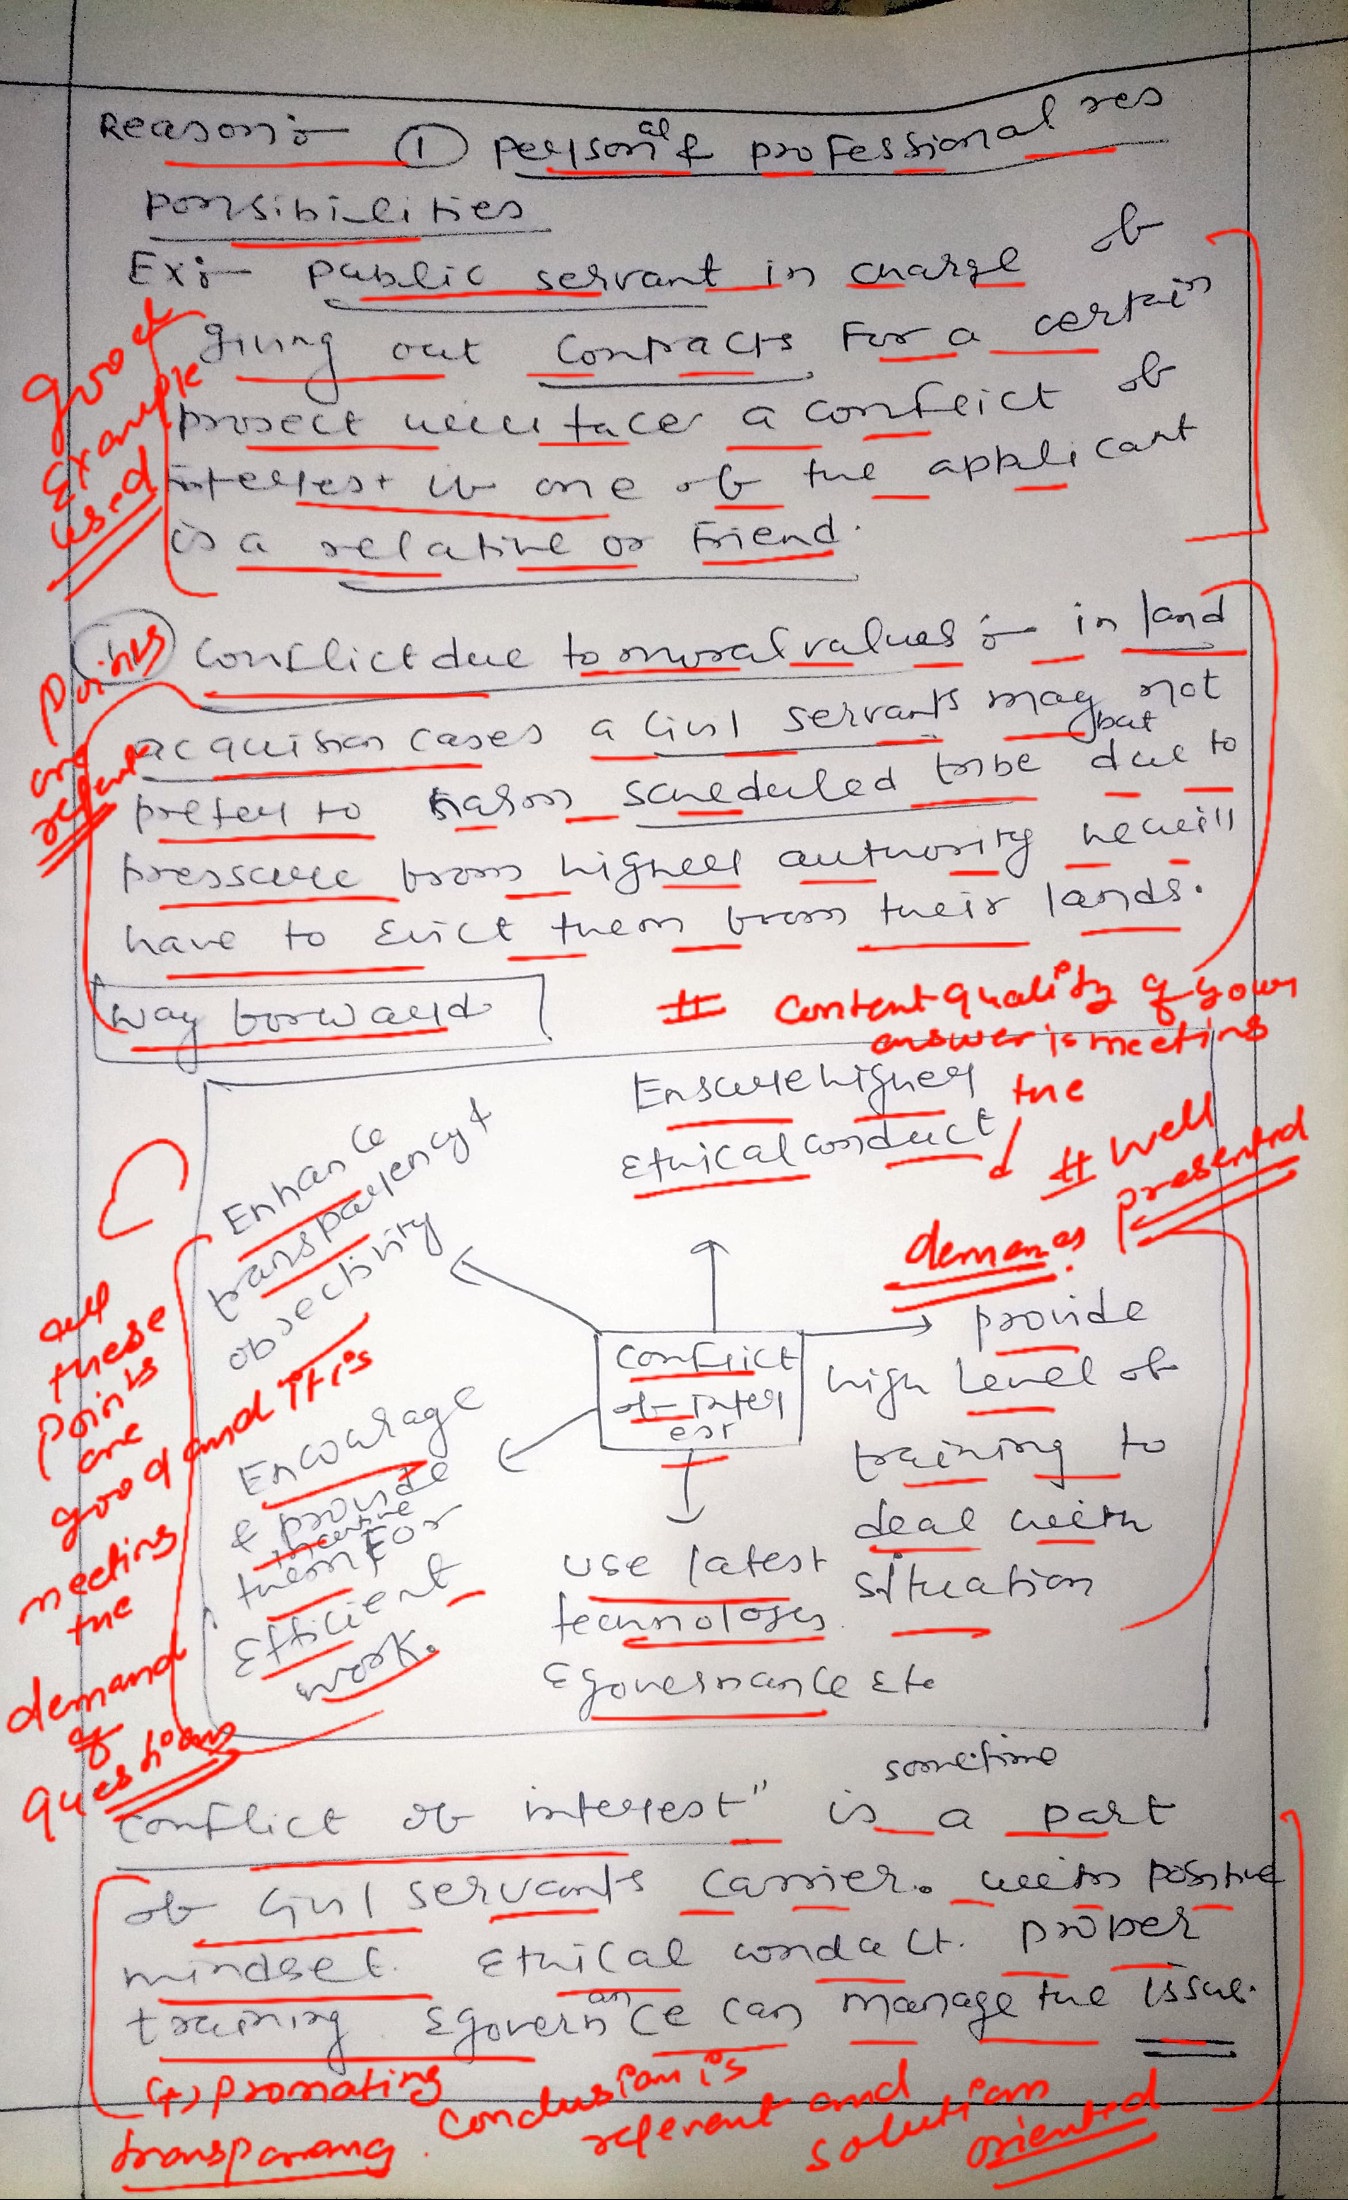 Reason:- ① personal & professional res
ponsibilities
Ex:- public servant in charge of
giving out contracts for a certain
project will face a conflict of
interest if one of the applicant
is a relative or friend.
good
example
used
conflict due to moral values :- in land
acquisition cases a Civil servants may not
prefer to harm scheduled tribe but due to
pressure from higher authority he will
have to evict them from their lands.
points
are
way forward
# content quality of your
answer is meeting
the
demands
# well
presented
Ensure higher
ethical conduct
Enhance
transparency &
objectivity
provide
high level of
training to
deal with
situation
conflict
of inter
est
Encourage
& provide
incentive
them for
Efficient
work.
use latest
technologes
Egovernance etc
all
these
points
are
good and this
meeting
the
demand
of
questions
conflict of interest" is sometime a part
of Civil servants carrier. with positive
mindset. Ethical conduct. proper
training Egovernance can manage the issue.
(+) promoting
transparang.
conclusion is
relevent and
solution
oriented